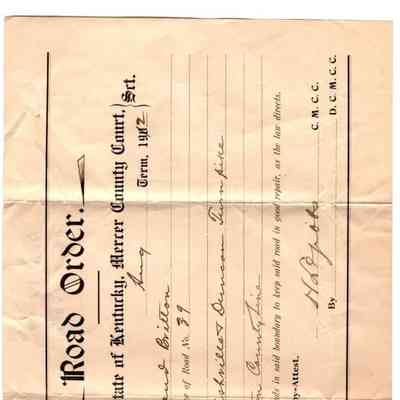 Road Order.
tate of Kentucky, Mercer County Court, } Sct.
Aug Term, 1912
Britton
of Road No. 39
& Duncan Turnpike
County Line
ts in said boundary to keep said road in good repair, as the law directs.
y-Attest.
C. M. C. C.
By D. C. M. C. C.